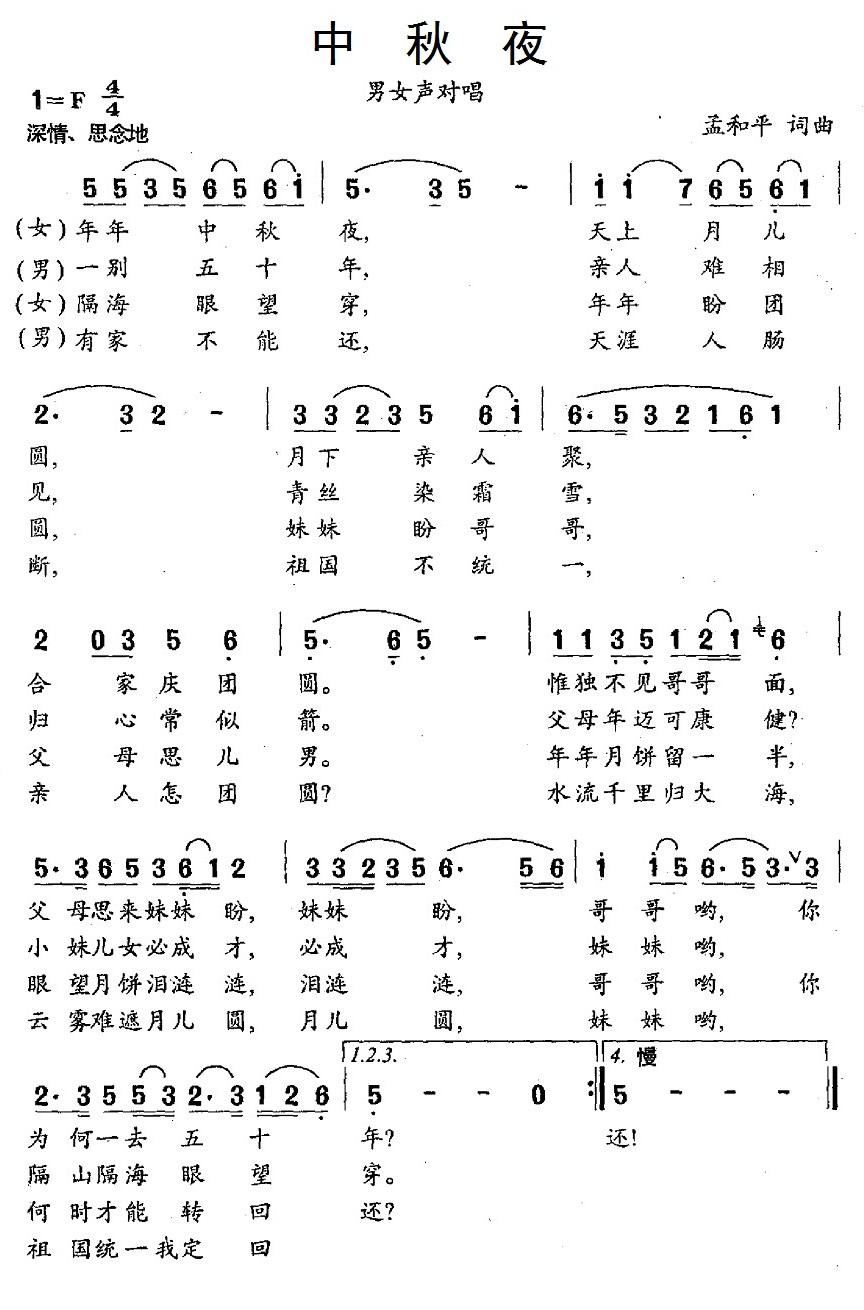 中秋夜
男女声对唱
1=F 4/4
深情、思念地
孟和平 词曲
5 5 3 5 6 5 6 i | 5· 3 5 - | i i 7 6 5 6 1 |
(女)年年 中 秋 夜, 天上 月 儿
(男)一别 五 十 年, 亲人 难 相
(女)隔海 眼 望 穿, 年年 盼 团
(男)有家 不 能 还, 天涯 人 肠
2· 3 2 - | 3 3 2 3 5 6 i | 6· 5 3 2 1 6 1 |
圆, 月下 亲 人 聚,
见, 青丝 染 霜 雪,
圆, 妹妹 盼 哥 哥,
断, 祖国 不 统 一,
2 0 3 5 6 | 5· 6 5 - | 1 1 3 5 1 2 1 6 |
合 家 庆 团 圆。 惟独不见哥哥 面,
归 心 常 似 箭。 父母年迈可康 健?
父 母 思 儿 男。 年年月饼留一 半,
亲 人 怎 团 圆? 水流千里归大 海,
5· 3 6 5 3 6 1 2 | 3 3 2 3 5 6· 5 6 | i i 5 6· 5 3· ∨ 3 |
父 母思来妹妹 盼, 妹妹 盼, 哥 哥 哟, 你
小 妹儿女必成 才, 必成 才, 妹 妹 哟,
眼 望月饼泪涟 涟, 泪涟 涟, 哥 哥 哟, 你
云 雾难遮月儿 圆, 月儿 圆, 妹 妹 哟,
1.2.3. 4. 慢
2· 3 5 5 3 2· 3 1 2 6 | 5 - - 0 :‖ 5 - - - ‖
为 何一去 五 十 年? 还!
隔 山隔海 眼 望 穿。
何 时才能 转 回 还?
祖 国统一我定 回